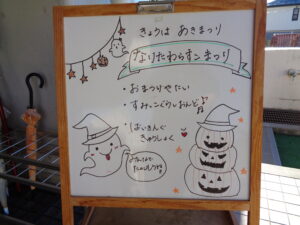 きょうは あきまつり
なりたわらすこまつり
・おまつりやたい
・すみっこぐらしおんど♪
・ばいきんぐ
きゅうしょく
みんなで
たのしもうね!